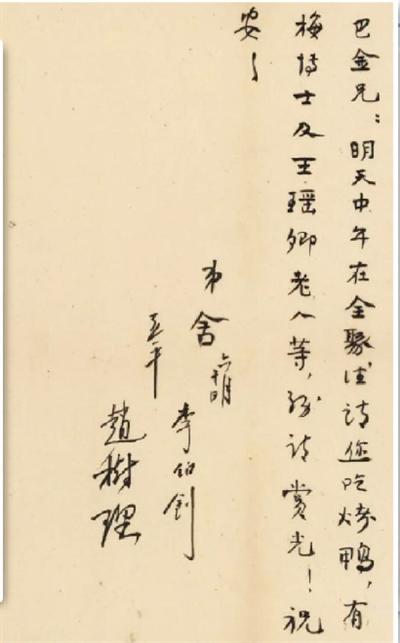 巴金兄：明天中午在全聚德请您吃烤鴨，有
梅博士及王瑶卿老人等，务请賞光！祝
安！
弟舍
亚平
李伯釗
趙樹理